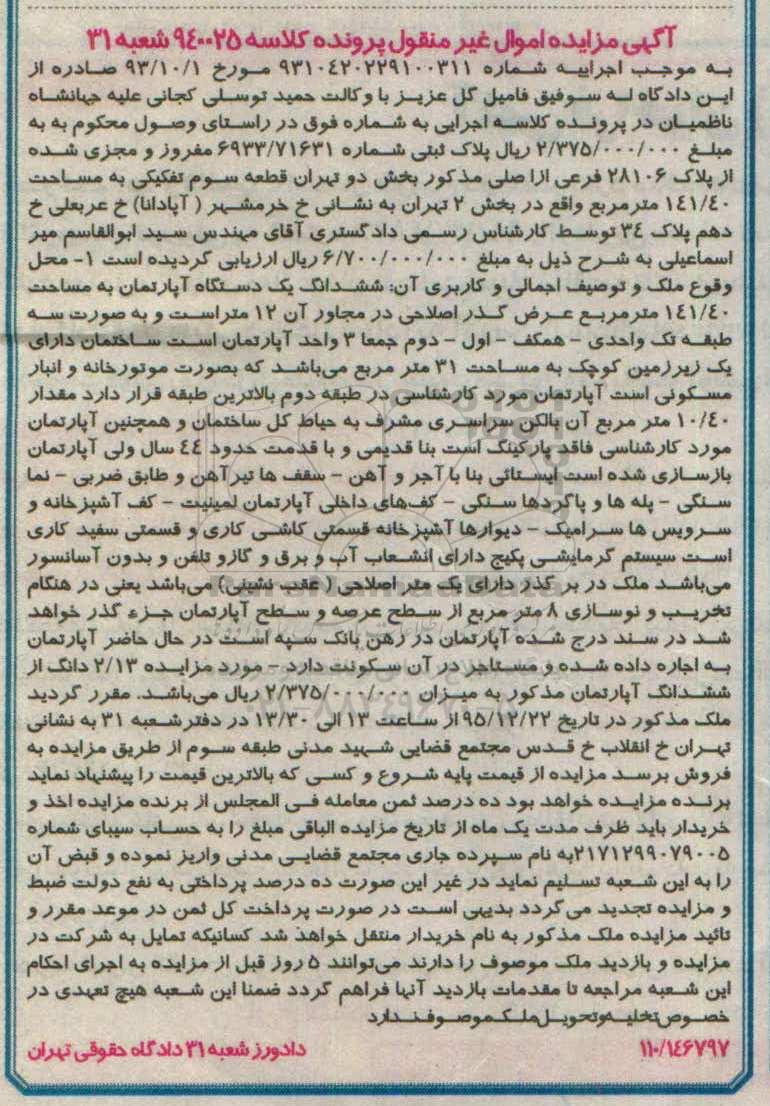 آگهی مزایده اموال غیر منقول پرونده کلاسه ۹۴۰۰۲۵ شعبه ۳۱
به موجب اجراییه شماره ۹۳۱۰۴۲۰۲۲۹۱۰۰۳۱۱ مورخ ۹۳/۱۰/۱ صادره از
این دادگاه له سوفیق فامیل گل عزیز با وکالت حمید توسلی کجانی علیه جهانشاه
ناظمیان در پرونده کلاسه اجرایی به شماره فوق در راستای وصول محکوم به به
مبلغ ۲/۳۷۵/۰۰۰/۰۰۰ ریال پلاک ثبتی شماره ۶۹۳۳/۷۱۶۳۱ مفروز و مجزی شده
از پلاک ۲۸۱۰۶ فرعی ازا صلی مذکور بخش دو تهران قطعه سوم تفکیکی به مساحت
۱۴۱/۴۰ مترمربع واقع در بخش ۲ تهران به نشانی خ خرمشهر ( آپادانا) خ عربعلی خ
دهم پلاک ۳۴ توسط کارشناس رسمی دادگستری آقای مهندس سید ابوالقاسم میر
اسماعیلی به شرح ذیل به مبلغ ۶/۷۰۰/۰۰۰/۰۰۰ ریال ارزیابی گردیده است ۱- محل
وقوع ملک و توصیف اجمالی و کاربری آن: ششدانگ یک دستگاه آپارتمان به مساحت
۱۴۱/۴۰ مترمربع عرض گذر اصلاحی در مجاور آن ۱۲ متراست و به صورت سه
طبقه تک واحدی – همکف – اول – دوم جمعا ۳ واحد آپارتمان است ساختمان دارای
یک زیرزمین کوچک به مساحت ۳۱ متر مربع می‌باشد که بصورت موتورخانه و انبار
مسکونی است آپارتمان مورد کارشناسی در طبقه دوم بالاترین طبقه قرار دارد مقدار
۱۰/۴۰ متر مربع آن بالکن سراسری مشرف به حیاط کل ساختمان و همچنین آپارتمان
مورد کارشناسی فاقد پارکینگ است بنا قدیمی و با قدمت حدود ۴۴ سال ولی آپارتمان
بازسازی شده است ایستائی بنا با آجر و آهن – سقف ها تیرآهن و طابق ضربی – نما
سنگی – پله ها و پاگردها سنگی – کف‌های داخلی آپارتمان لمینیت – کف آشپزخانه و
سرویس ها سرامیک – دیوارها آشپزخانه قسمتی کاشی کاری و قسمتی سفید کاری
است سیستم گرمایشی پکیج دارای انشعاب آب و برق و گازو تلفن و بدون آسانسور
می‌باشد ملک در بر گذر دارای یک متر اصلاحی ( عقب نشینی) می‌باشد یعنی در هنگام
تخریب و نوسازی ۸ متر مربع از سطح عرصه و سطح آپارتمان جزء گذر خواهد
شد در سند درج شده آپارتمان در رهن بانک سپه است در حال حاضر آپارتمان
به اجاره داده شده و مستاجر در آن سکونت دارد – مورد مزایده ۲/۱۳ دانگ از
ششدانگ آپارتمان مذکور به میزان ۲/۳۷۵/۰۰۰/۰۰۰ ریال می‌باشد. مقرر گردید
ملک مذکور در تاریخ ۹۵/۱۲/۲۲ از ساعت ۱۳ الی ۱۳/۳۰ در دفترشعبه ۳۱ به نشانی
تهران خ انقلاب خ قدس مجتمع قضایی شهید مدنی طبقه سوم از طریق مزایده به
فروش برسد مزایده از قیمت پایه شروع و کسی که بالاترین قیمت را پیشنهاد نماید
برنده مزایده خواهد بود ده درصد ثمن معامله فی المجلس از برنده مزایده اخذ و
خریدار باید ظرف مدت یک ماه از تاریخ مزایده الباقی مبلغ را به حساب سیبای شماره
۲۱۷۱۲۹۹۰۷۹۰۰۵به نام سپرده جاری مجتمع قضایی مدنی واریز نموده و قبض آن
را به این شعبه تسلیم نماید در غیر این صورت ده درصد پرداختی به نفع دولت ضبط
و مزایده تجدید می‌گردد بدیهی است در صورت پرداخت کل ثمن در موعد مقرر و
تائید مزایده ملک مذکور به نام خریدار منتقل خواهد شد کسانیکه تمایل به شرکت در
مزایده و بازدید ملک موصوف را دارند می‌توانند ۵ روز قبل از مزایده به اجرای احکام
این شعبه مراجعه تا مقدمات بازدید آنها فراهم گردد ضمنا این شعبه هیچ تعهدی در
خصوص تخلیه و تحویل ملک موصوف ندارد
۱۱۰/۱۴۶۷۹۷ دادورز شعبه ۳۱ دادگاه حقوقی تهران